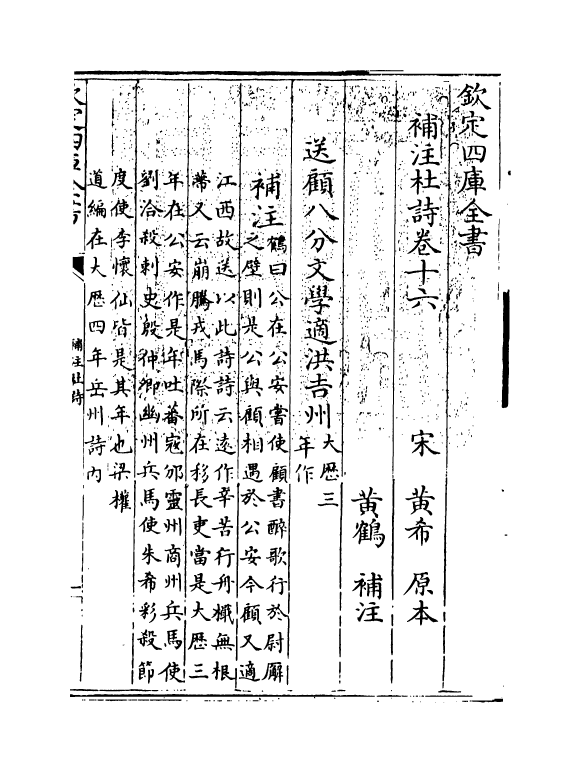 欽定四庫全書
補注杜詩卷十六
宋 黃希 原本
黃鶴 補注
送顧八分文學適洪吉州大厯三
年作
補注鶴曰公在公安嘗使顧書醉歌行於尉廨
之壁則是公與顧相遇於公安今顧又適
江西故送以此詩詩云遠作辛苦行舟檝無根
蔕又云崩騰戎馬際所在移長吏當是大厯三
年在公安作是年吐蕃寇邠靈州商州兵馬使
劉洽殺刺史殷仲卿幽州兵馬使朱希彩殺節
度使李懷仙皆是其年也梁權
道編在大厯四年岳州詩內
補注杜詩
一